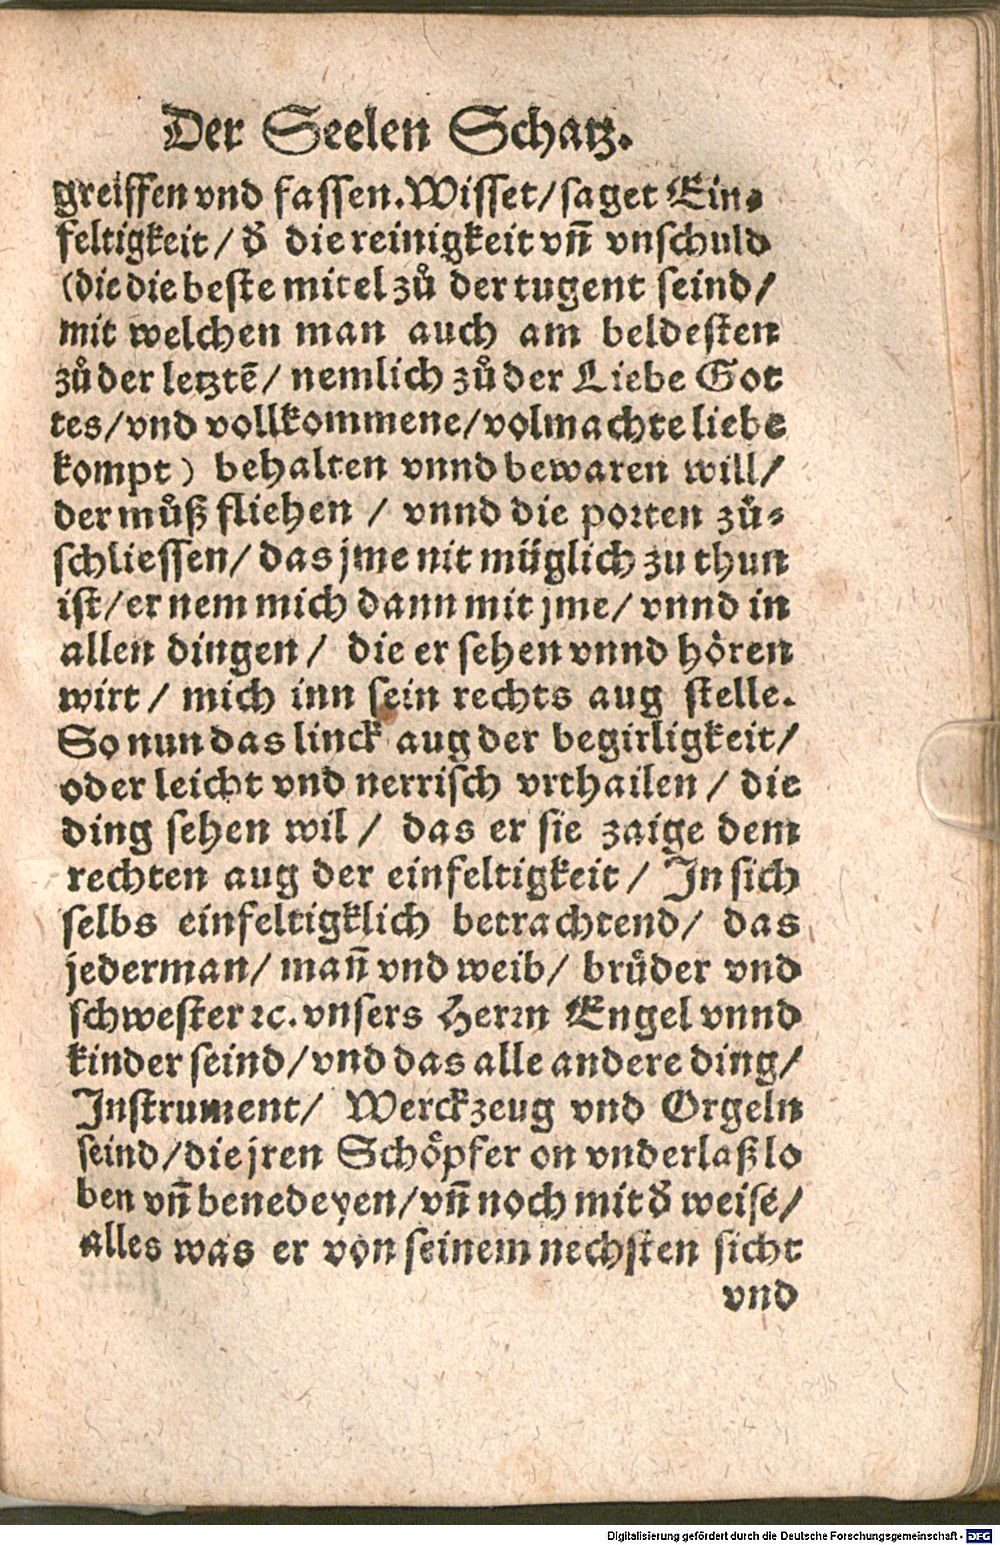 Der Seelen Schatz.
greiffen vnd fassen. Wisset/ saget Ein-
feltigkeit/ d̓ die reinigkeit vn̄ vnschuld
(die die beste mitel zů der tugent seind/
mit welchen man auch am beldesten
zů der letztē/ nemlich zů der Liebe Got
tes/ vnd vollkommene/ volmachte liebe
kompt) behalten vnnd bewaren will/
der můß fliehen / vnnd die porten zů-
schliessen/ das jme nit müglich zu thun
ist/ er nem mich dann mit jme/ vnnd in
allen dingen/ die er sehen vnnd hören
wirt/ mich inn sein rechts aug stelle.
So nun das linck aug der begirligkeit/
oder leicht vnd nerrisch vrthailen / die
ding sehen wil/ das er sie zaige dem
rechten aug der einfeltigkeit/ In sich
selbs einfeltigklich betrachtend/ das
jederman/ man̄ vnd weib/ brůder vnd
schwester ꝛc. vnsers Herrn Engel vnnd
kinder seind/ vnd das alle andere ding/
Instrument/ Werckzeug vnd Orgeln
seind/ die jren Schöpfer on vnderlaß lo
ben vn̄ benedeyen/ vn̄ noch mit d̓ weise/
alles was er von seinem nechsten sicht
vnd
Digitalisierung gefördert durch die Deutsche Forschungsgemeinschaft - DFG